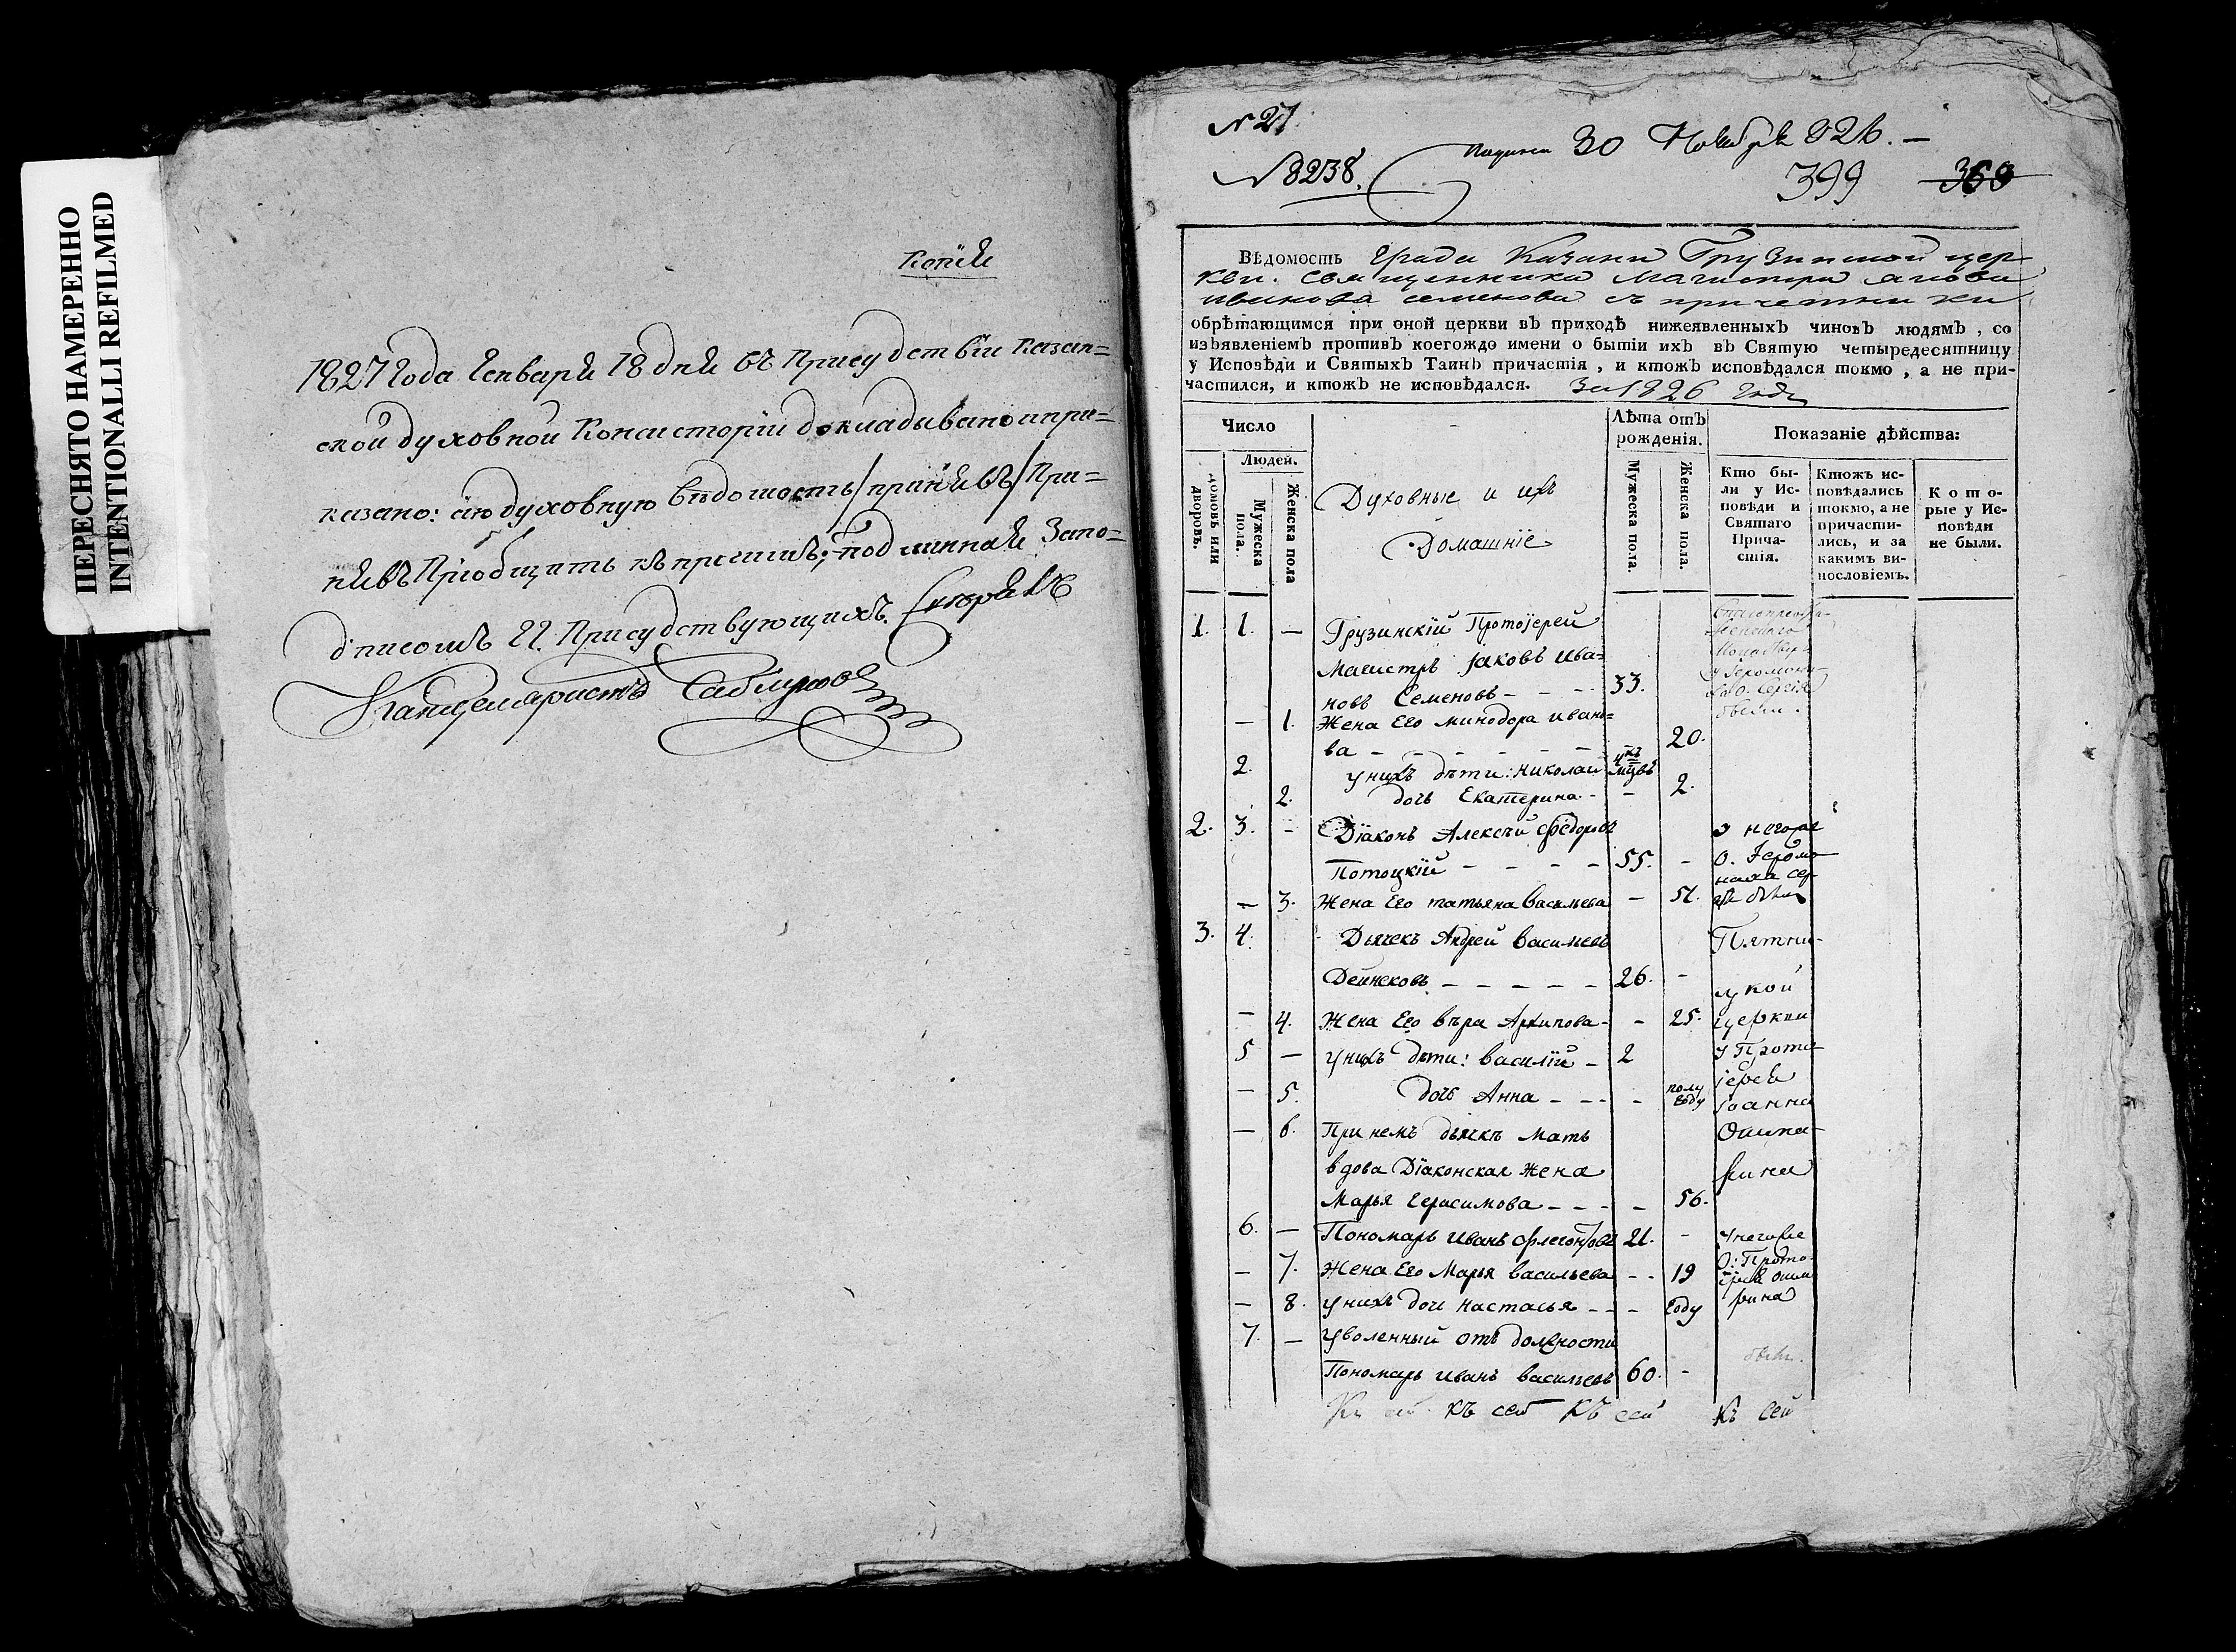 ПЕРЕСНЯТО НАМЕРЕННО
INTENTIONALLI REFILMED
Копія
1827 года Генваря 18 дня въ Присудствіи Казан=
ской духовной Консисторіи докладывано и при=
казано: сію духовную вѣдомость / принявъ / При=
Пріобщить къ прочимъ; подлинная запо=
дписомъ Гг. Присудствующихъ. Скорякъ
Канцеляристъ
N 27
N 8238.
30 Ноября 826. —
399 369
Вѣдомость Града Казани Грузинской цер-
кви. священника Магистра Якова
Иванова Семенова съ причетники
обрѣтающимся при оной церкви въ приходѣ нижеявленныхъ чиновъ людямъ, со
изъявленіемъ противъ коегождо имени о бытіи ихъ въ Святую четыредесятницу
у Исповѣди и Святыхъ Таинъ причастія, и ктожъ исповѣдался токмо, а не при-
частился, и ктожъ не исповѣдался. За 1826 годъ
Число
Людей.
Домовъ или дворовъ.
Мужеска пола.
Женска пола
Духовные и ихъ
Домашніе
Лѣта отъ
рожденія.
Мужеска пола.
Женска пола.
Показаніе дѣйства:
Кто бы-
ли у Ис-
повѣди и
Святаго
Прича-
стія.
Ктожъ ис-
повѣдались
токмо, а не
причасти-
лись, и за
какимъ ви-
нословіемъ.
Кото-
рые у Ис-
повѣди
не были.
1. 1. — Грузинскій Протоіерей
Магистръ Іаковъ Ива=
новъ Семеновъ - - - 33.
— 1. Жена Его Минодора Ивано=
ва - - - - - - 20.
2. у нихъ дѣти: Николай 4хъ мцовъ
2. дочь Екатерина - - 2.
2. 3. - Діаконъ Алексѣй Федоровъ у негоже
Потоцкій - - - - 55. - О. Іеромо-
наха Сер-
— 3. Жена Его Татьяна Васильева - 51.
3. 4. Дьячекъ Андрей Васильевъ Пятни-
Дейнековъ - - - - - 26. - цкой
— 4. Жена Его Вѣра Архипова - - 25. церкви
5 — у нихъ дѣти: Василій - 2 у Прото-
— 5. дочь Анна - - - - полу году іерея Іоанна
— 6. При немъ дьячкѣ мать
вдова Діаконская жена
Марья Герасимова - - - - 56.
6. — Пономарь Иванъ Флегонтовъ 21. - у негоже
— 7. Жена Его Марья Васильева - - 19 О: Прото-
— 8. у нихъ дочь Настасья - - - году
7. — Уволенный отъ должности
Пономарь Иванъ Васильевъ 60. -
Къ сей Къ сей Къ сей Къ сей